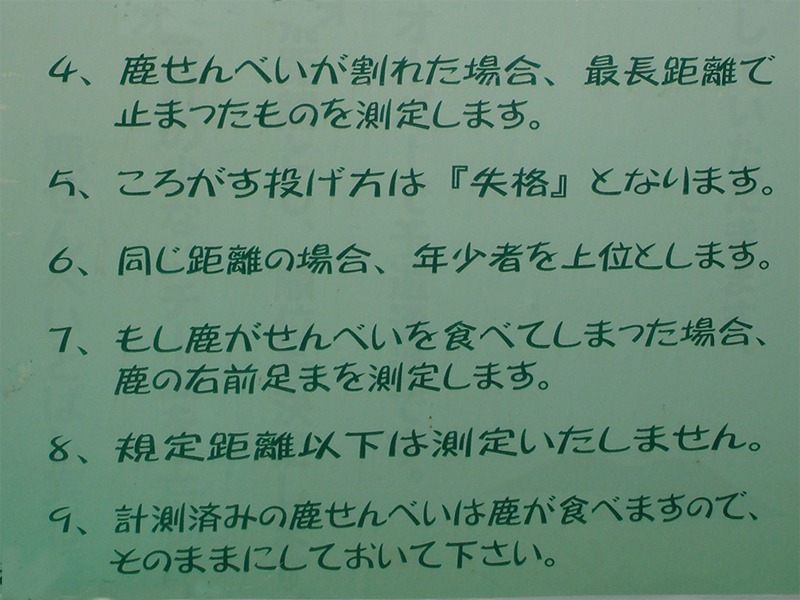 4、鹿せんべいが割れた場合、最長距離で
止まったものを測定します。
5、ころがす投げ方は『失格』となります。
6、同じ距離の場合、年少者を上位とします。
7、もし鹿がせんべいを食べてしまった場合、
鹿の右前足まを測定します。
8、規定距離以下は測定いたしません。
9、計測済みの鹿せんべいは鹿が食べますので、
そのままにしておいて下さい。